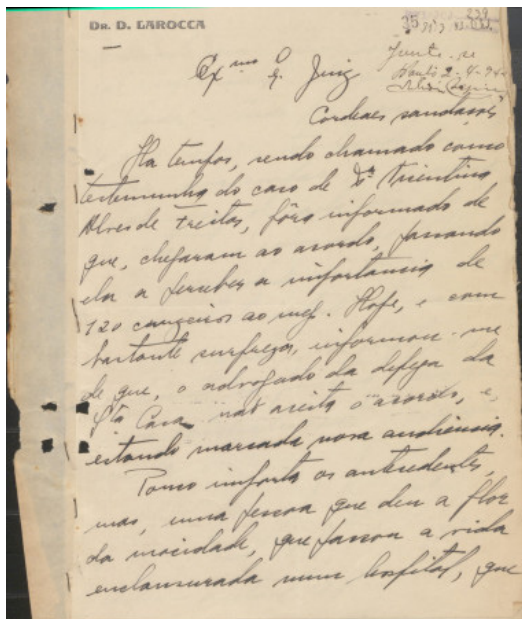 DR. D. LAROCCA
35 239
Junte-se
Bauru 2-4-94
Exmo Sr. Juiz
Cordeaes saudações
Ha tempos, sendo chamado como
testemunha do caso de Da Trientina
Alves de Freitas, fôra informado de
que, chegaram ao acordo, passando
ela a perceber a importancia de
120 cruzeiros ao mez. Hoje, e com
bastante surpreza, informou-me
de que, o advogado da defeza da
Sta Casa não aceita o acordo, e,
estando marcada nova audiencia.
Pouco importa os antecedentes,
mas, uma pessoa que deu a flor
da mocidade, que passou a vida
enclausurada num hospital, que